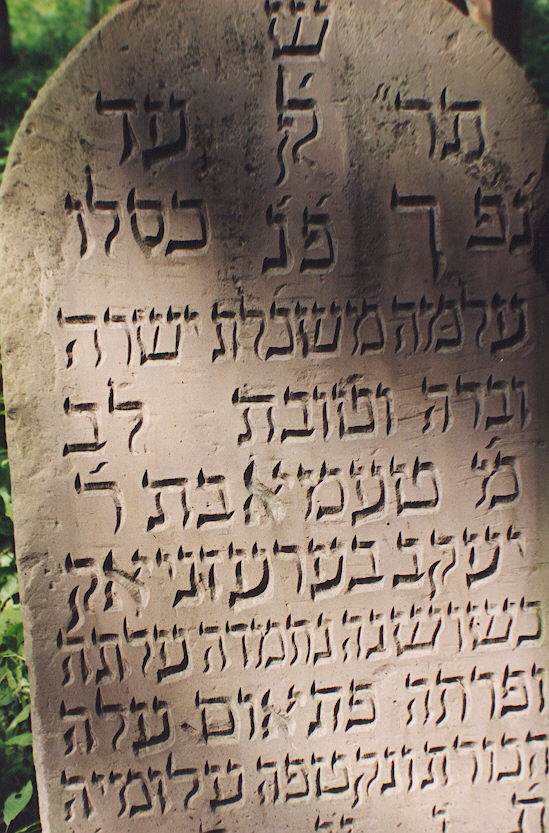 ש
תר' ק עד
נפ' ך פ'נ' כסלו
עלמה משכלת ישרה
וברה וטובת לב
מ' טעמיא בת ר'
יעקב בערעזניאק
כשושנה נחמדה עלתה
ופרתה פתאום עלה
הכורת ונקטפה עלומיה